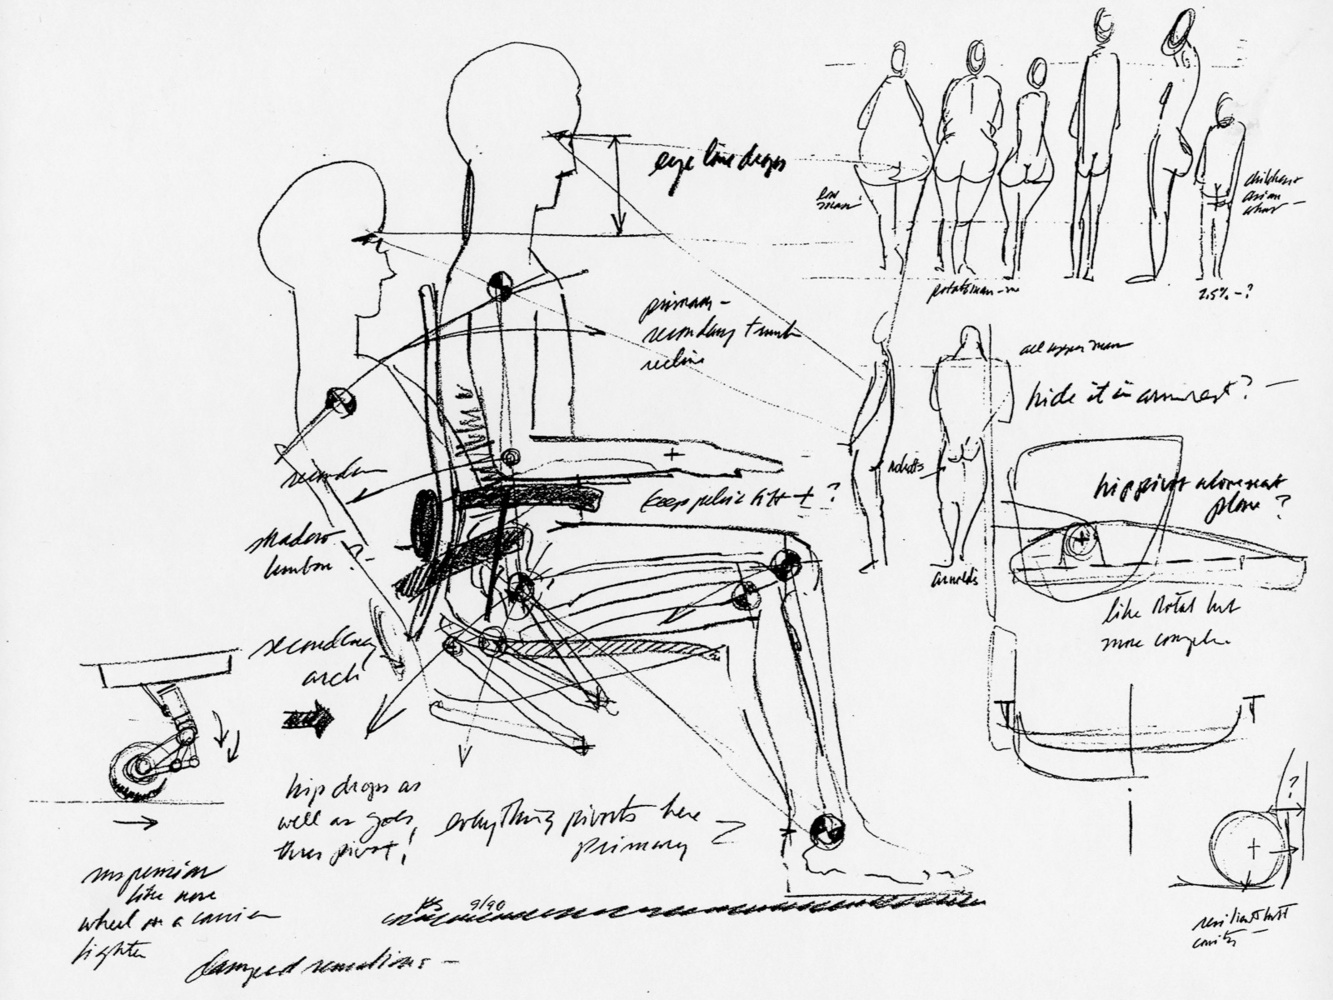 eye line drops
low
mean
potatoman
children +
asian
2.5% - ?
primary -
secondary trunk
recline
all upper man
hide it in armrest? -
robots
Arnolds
hip pivot above seat
plane ?
keep pelvic tilt + ?
like Total but
more complex
shadow
lumbar ?
secondary
arch
hip drops as
well as goes
thru pivot!
everything pivots here -
primary
?
suspension
like nose
wheel on a carrier
fighter
9/90
damped sensations -
resilient butt
cavity -